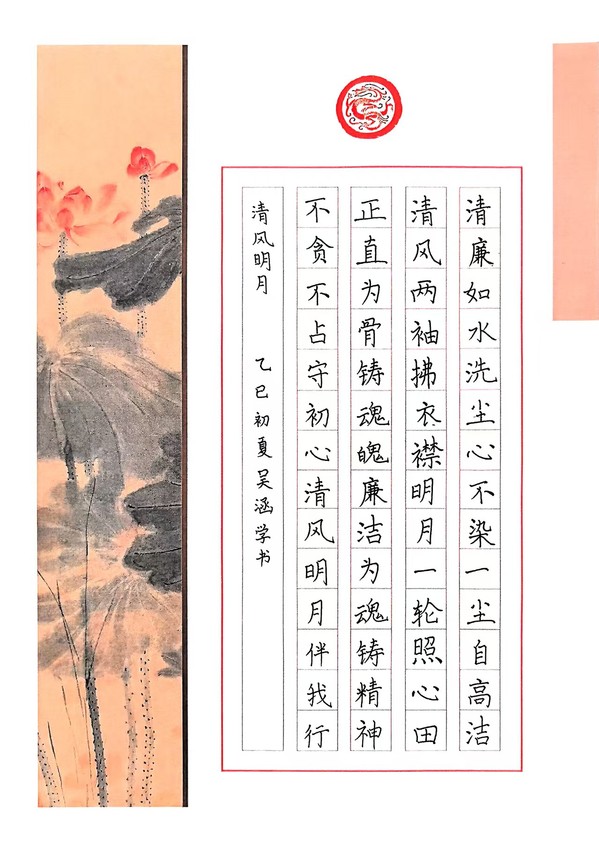 清廉如水洗尘心不染一尘自高洁
清风两袖拂衣襟明月一轮照心田
正直为骨铸魂魄廉洁为魂铸精神
不贪不占守初心清风明月伴我行
清风明月 乙巳初夏吴涵学书